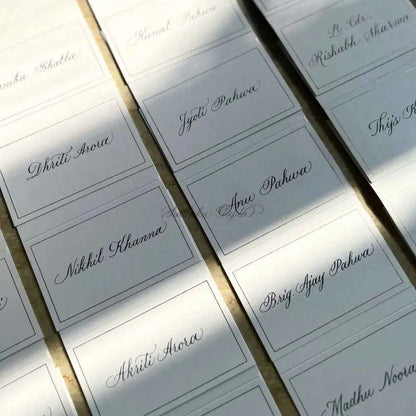 Bhatla
Dhriti Arora
Nikhil Khanna
Akriti Arora
Kunal Pahwa
Jyoti Pahwa
Anu Pahwa
Brig Ajay Pahwa
Madhu Noora
Lt Cdr.
Rishabh Sharma
Thys K